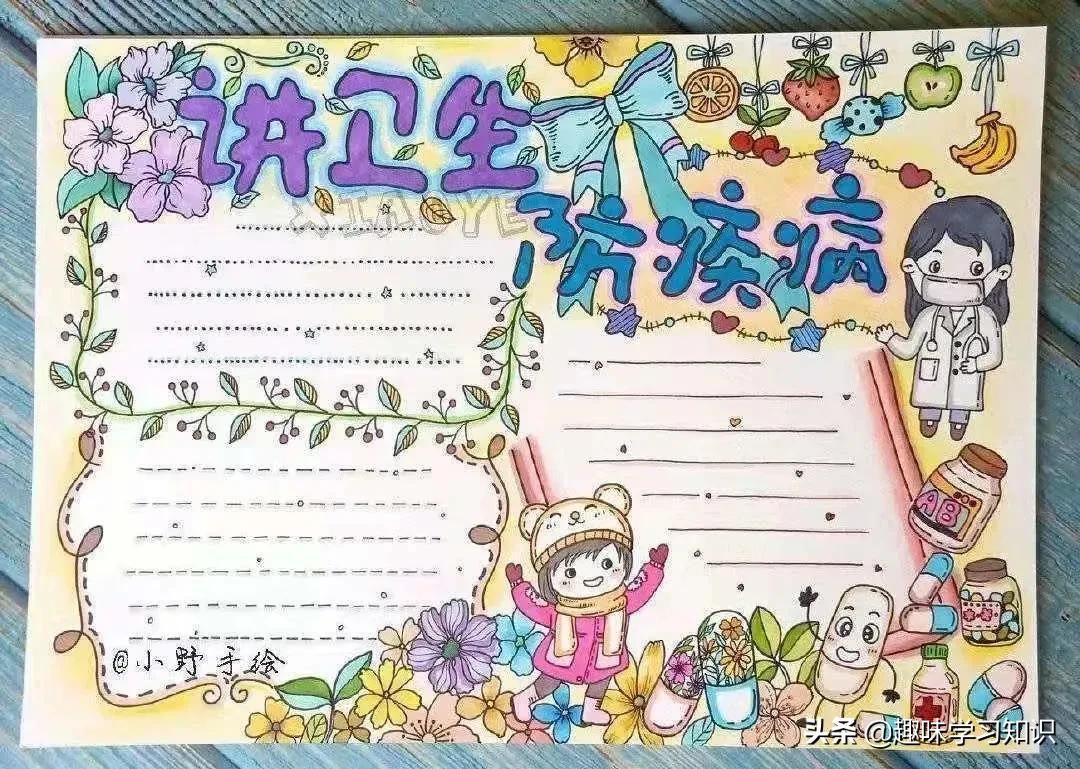 讲卫生
XIAOYE
防疾病
AB
@小野手绘
头条 @趣味学习知识